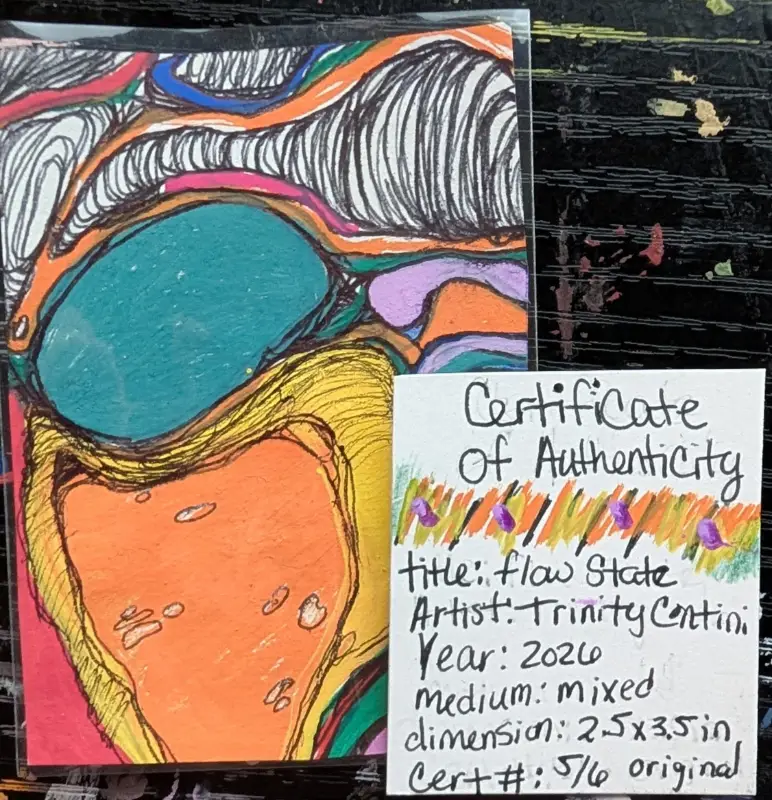 Certificate
of Authenticity
title: flow State
Artist: Trinity Contini
Year: 2026
medium: mixed
dimension: 2.5x3.5 in
Cert #: 5/6 original